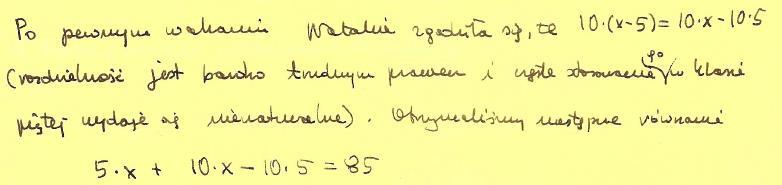 Po pewnym wahaniu Natalia zgodziła się, że 10·(x-5)=10·x-10·5
(rozdzielność jest bardzo trudnym prawem i nagłe stosowanie go w klasie
piątej wydaje się nienaturalne). Otrzymaliśmy następne równanie
5·x + 10·x-10·5=85